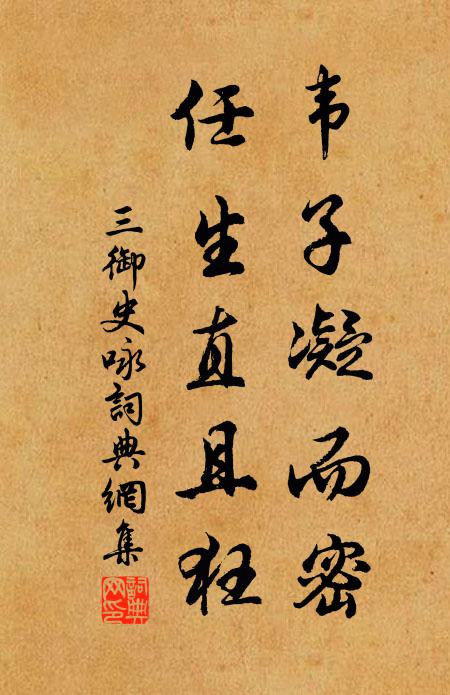 韦子凝而密
任生直且狂
三御史咏詞典網集
詞典網印